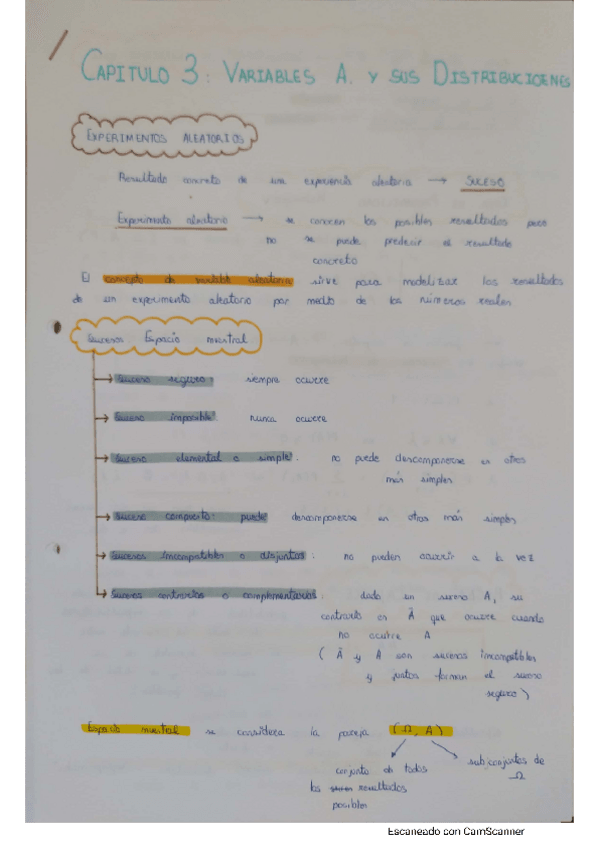 CAPITULO 3: VARIABLES A. Y SUS DISTRIBUCIONES
EXPERIMENTOS ALEATORIOS
Resultado concreto de una experiencia aleatoria → SUCESO
Experimento aleatorio → se conocen los posibles resultados pero
no se puede predecir el resultado
concreto
El concepto de variable aleatoria sirve para modelizar los resultados
de un experimento aleatorio por medio de los números reales.
Sucesos Espacio muestral
Suceso seguro: siempre ocurre
Suceso imposible: nunca ocurre
Suceso elemental o simple: no puede descomponerse en otros
más simples
Suceso compuesto: puede descomponerse en otros más simples
Sucesos incompatibles o disjuntos: no pueden ocurrir a la vez
Sucesos contrarios o complementarios: dado un suceso A, su
contrario es Ā que ocurre cuando
no ocurre A
(Ā y A son sucesos incompatibles
y juntos forman el suceso
seguro)
Espacio muestral se considera la pareja (Ω, A)
conjunto de todos
los resultados
posibles
subconjuntos de
Ω
Escaneado con CamScanner